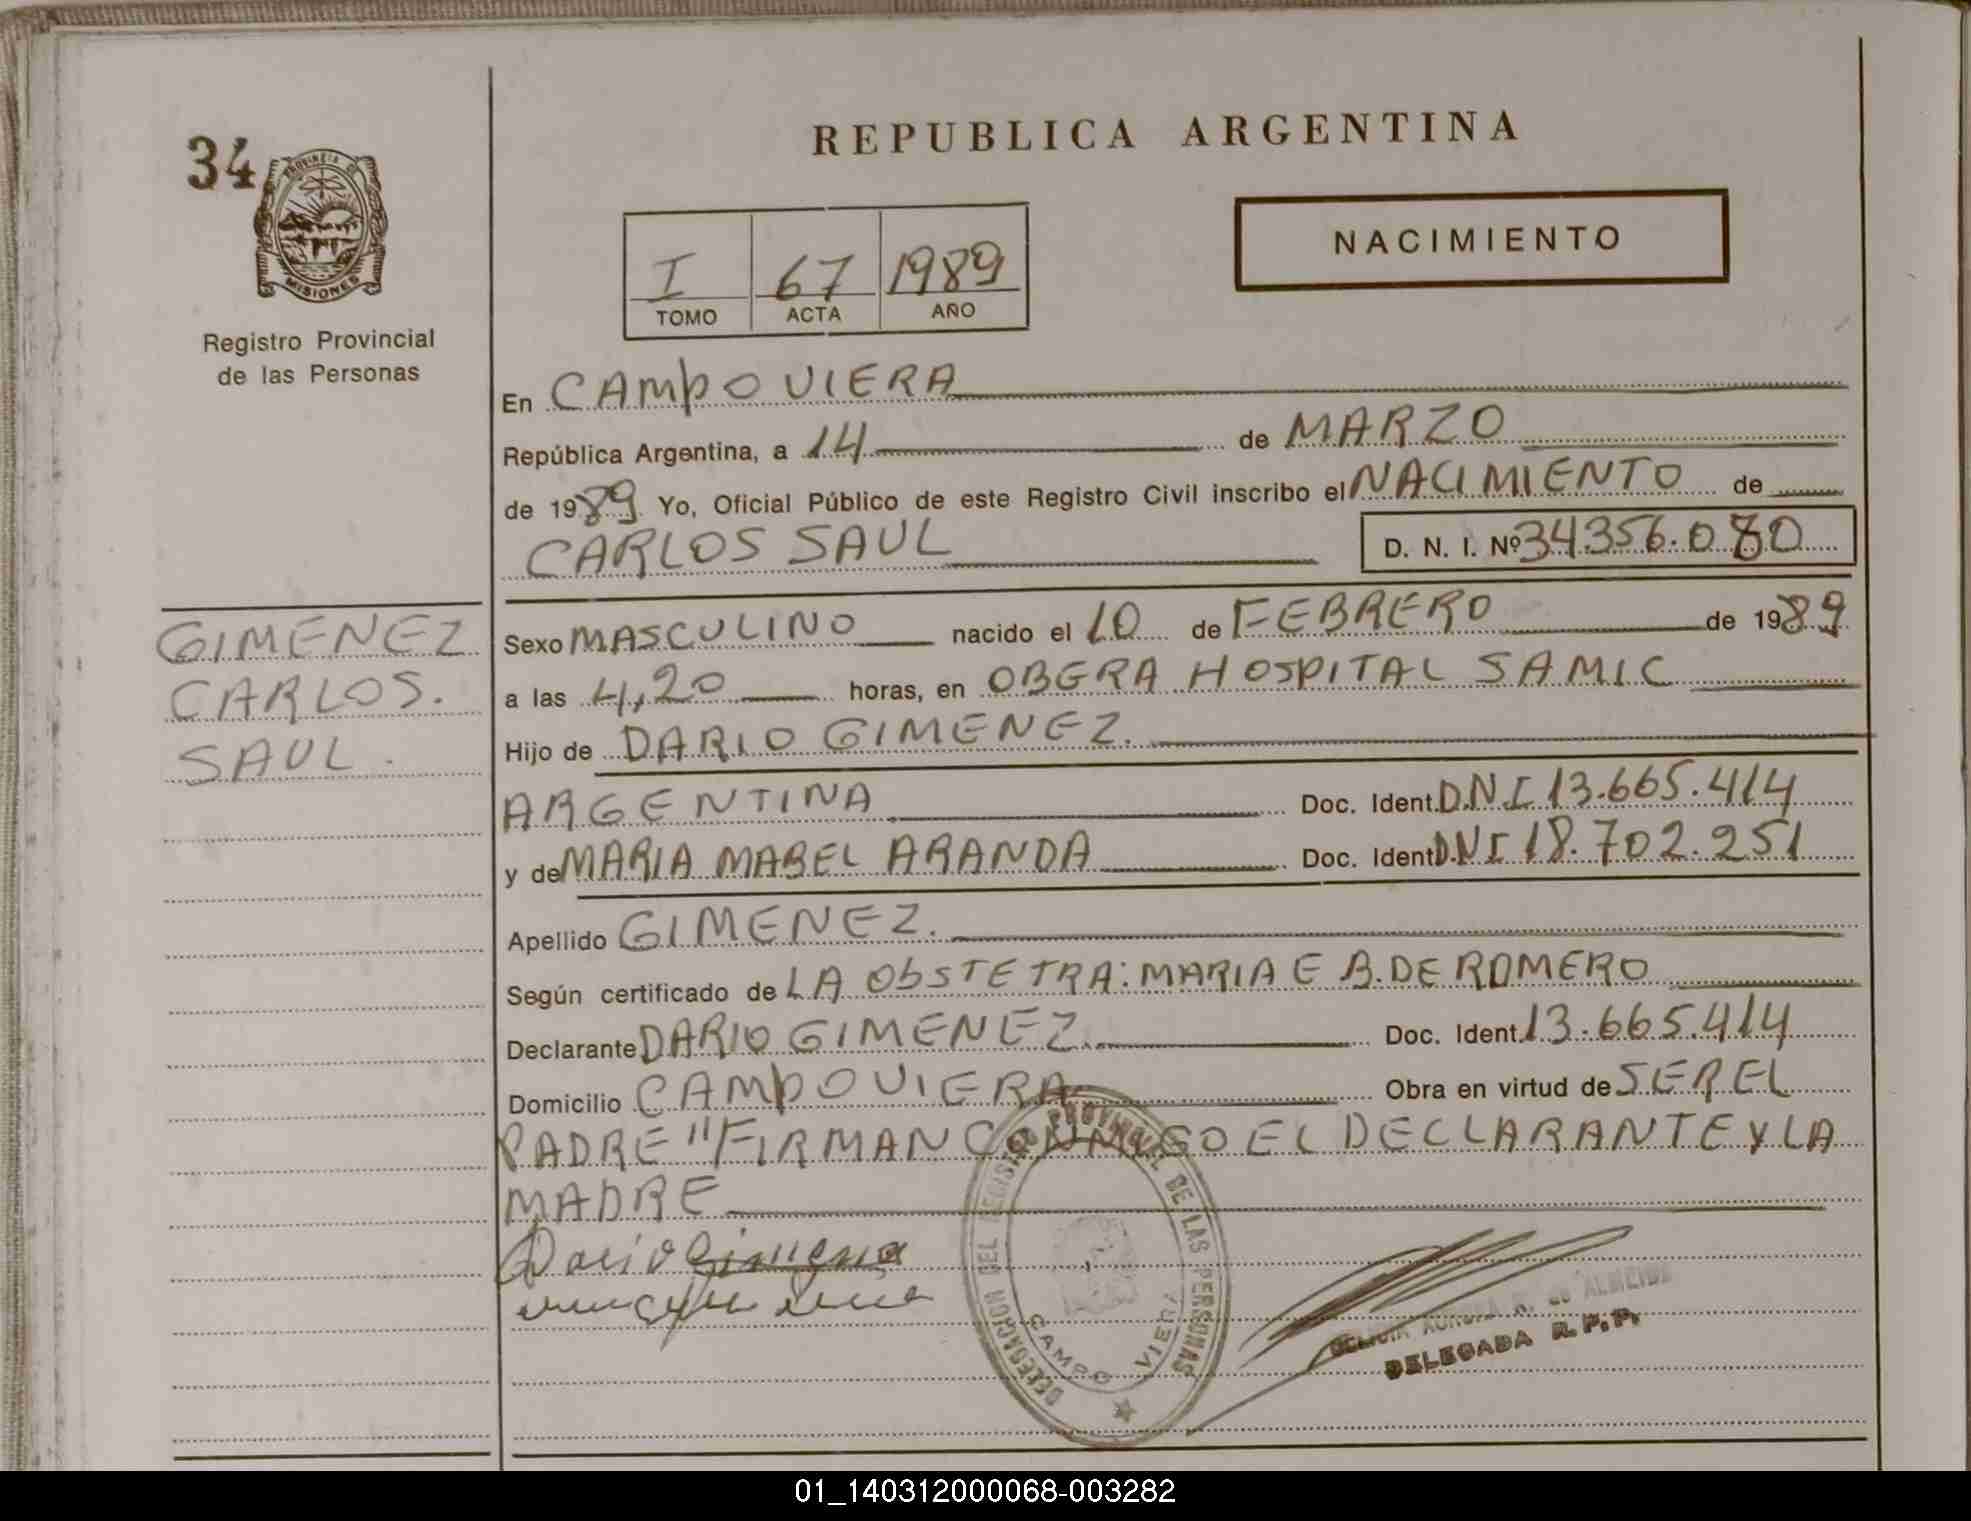 34
PROVINCIA D
MISIONES
Registro Provincial
de las Personas
GIMENEZ
CARLOS.
SAUL.
REPUBLICA ARGENTINA
I 67 1989
TOMO ACTA AÑO
NACIMIENTO
En CAMPO VIERA
República Argentina, a 14 de MARZO
de 1989 Yo, Oficial Público de este Registro Civil inscribo el NACIMIENTO de
CARLOS SAUL D. N. I. Nº 34.356.080
Sexo MASCULINO nacido el 10 de FEBRERO de 1989
a las 4,20 horas, en OBERA HOSPITAL SAMIC
Hijo de DARIO GIMENEZ.
ARGENTINA Doc. Ident. D.N.I 13.665.414
y de MARIA MABEL ARANDA Doc. Ident D.N I 18.702.251
Apellido GIMENEZ.
Según certificado de LA ObSTETRA: MARIA E B. DE ROMERO
Declarante DARIO GIMENEZ. Doc. Ident. 13.665.414
Domicilio CAMPO VIERA Obra en virtud de SER EL
PADRE "FIRMAN CONMIGO EL DECLARANTE Y LA
MADRE
Dario Gimenez
DELEGACION DEL REGISTRO PROVINCIAL DE LAS PERSONAS
CAMPO VIERA
AURORA R. de ALMEIDA
DELEGADA R.P.P.
01_140312000068-003282